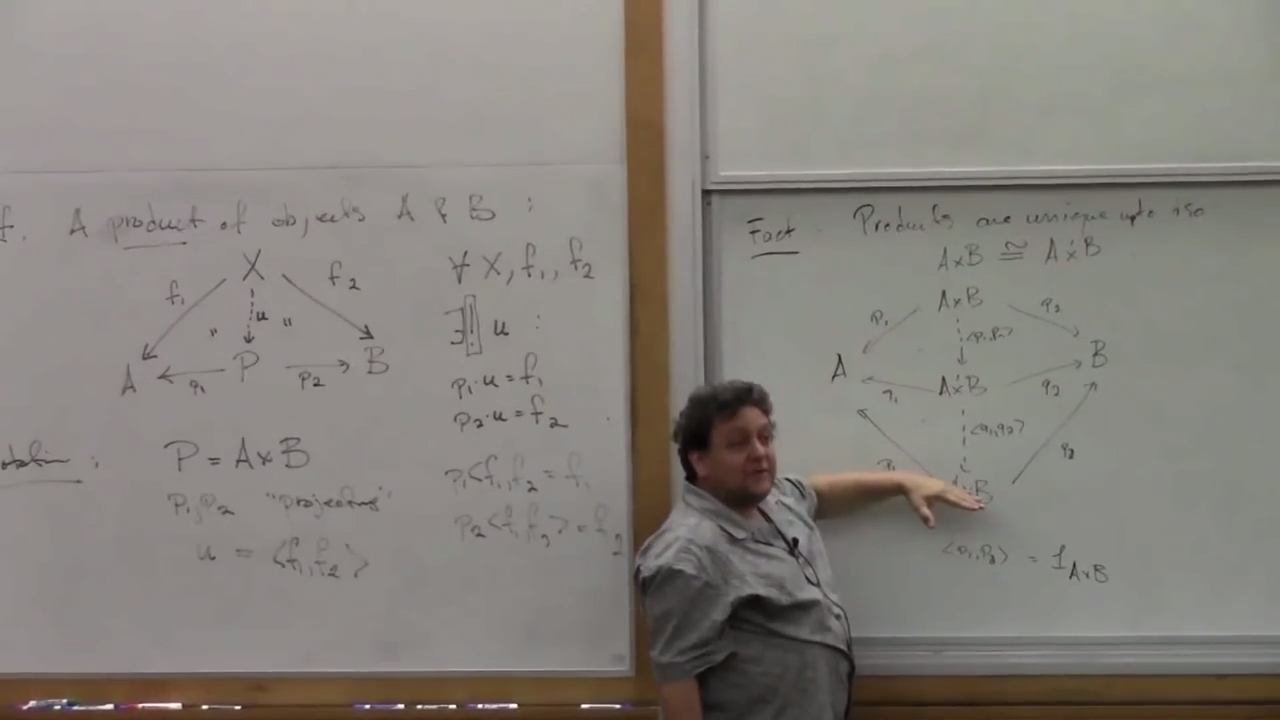 f. A product of objects A & B :
X
f₁ f₂
" u "
A P B
p₁ p₂
∀ X, f₁, f₂
∃! u :
p₁·u = f₁
p₂·u = f₂
P = A×B
p₁, p₂ "projections"
u = <f₁, f₂>
p₁<f₁, f₂ = f₁
p₂<f₁, f₂> = f₂
Fact. Products are unique upto iso
A×B ≅ A×'B
A×B
p₁ p₂
<p₁,p₂>
A A×'B B
q₁ q₂
<q₁,q₂>
p₁ p₂
×B
<p₁, p₂> = 1_A×B